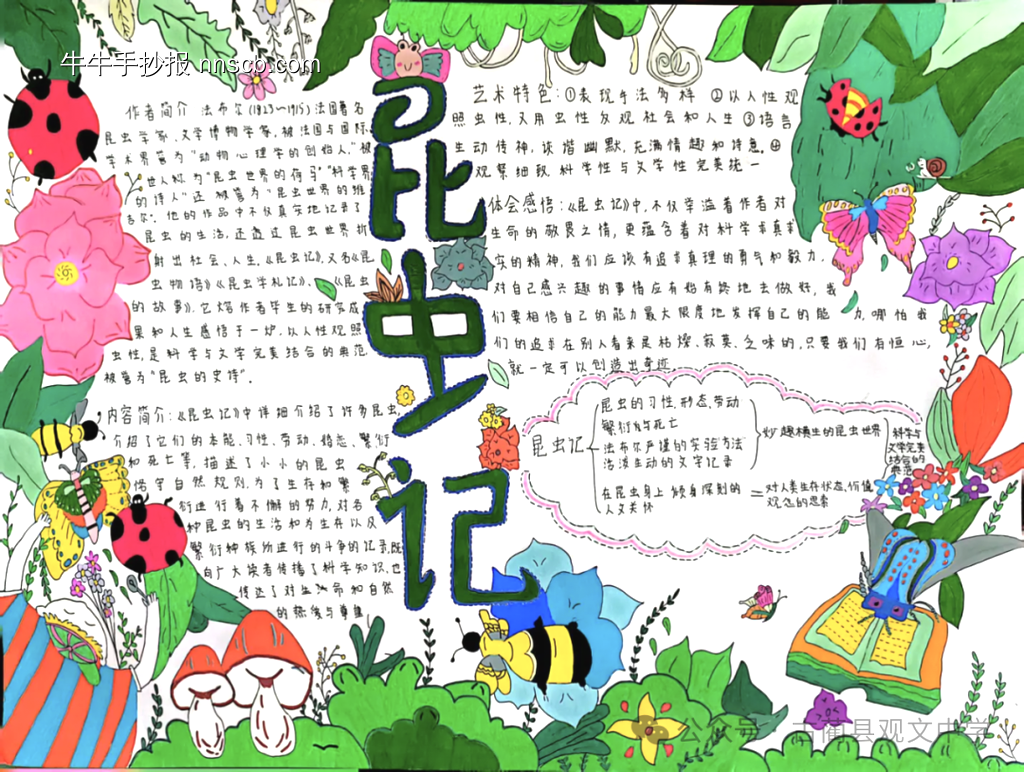 牛牛手抄报 nnscb.com
昆虫记
作者简介 法布尔(1823~1915)法国著名
昆虫学家、文学博物学家,被法国与国际
学术界誉为"动物心理学的创始人,"被
世人称为"昆虫世界的荷马""科学界
的诗人"还被誉为"昆虫世界的维
吉尔"。他的作品中不仅真实地记录了
昆虫的生活,还透过昆虫世界折
射出社会、人生。《昆虫记》,又名《昆
虫物语》《昆虫学札记》、《昆虫
的故事》。它熔作者毕生的研究成
果和人生感悟于一炉,以人性观照
虫性,是科学与文学完美结合的典范,
被誉为"昆虫的史诗"。
内容简介:《昆虫记》中详细介绍了许多昆虫,
介绍了它们的本能、习性、劳动、婚恋、繁衍
和死亡等,描述了小小的昆虫
恪守自然规则,为了生存和繁
衍进行着不懈的努力,对各
种昆虫的生活和为生存以及
繁衍种族所进行的斗争的记录,既
向广大读者传播了科学知识,也
传达了对生命和自然
的热爱与尊重
艺术特色:①表现手法多样 ②以人性观
照虫性,又用虫性反观社会和人生 ③语言
生动传神,诙谐幽默,充满情趣和诗意。④
观察细致,科学性与文学性完美统一
体会感悟:《昆虫记》中,不仅幸溢着作者对
生命的敬畏之情,更蕴含着对科学求真求
实的精神,我们应该有追求真理的勇气和毅力,
对自己感兴趣的事情应有始有终地去做好,我
们要相信自己的能力最大限度地发挥自己的能 力,哪怕我
们的追求在别人看来是枯燥、寂莫、乏味的,只要我们有恒心,
就一定可以创造出奇迹
昆虫记
昆虫的习性、形态、劳动
繁衍与死亡
法布尔严谨的实验方法
活泼生动的文字记录
妙趣横生的昆虫世界
在昆虫身上倾身深刻的
人文关怀
=对人类生存状态、价值
观念的思索
科学与
文学完美
结合的
典范
公众号 · 古蔺县观文中学